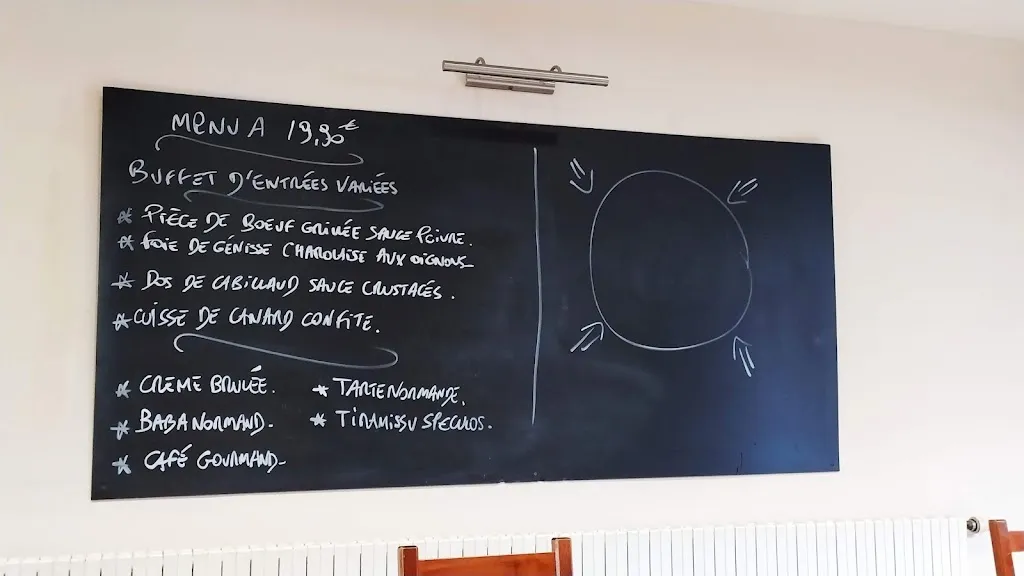 MENU A 19,90€
BUFFET D'ENTRÉES VARIÉES
* PIÈCE DE BOEUF GRILLÉE SAUCE POIVRE.
* FOIE DE GÉNISSE CHAROLAISE AUX OIGNONS
* DOS DE CABILLAUD SAUCE CRUSTACÉS.
* CUISSE DE CANARD CONFITE.
* CRÈME BRULÉE.
* TARTE NORMANDE.
* BABA NORMAND-
* TIRAMISSU SPECULOS.
* CAFÉ GOURMAND-